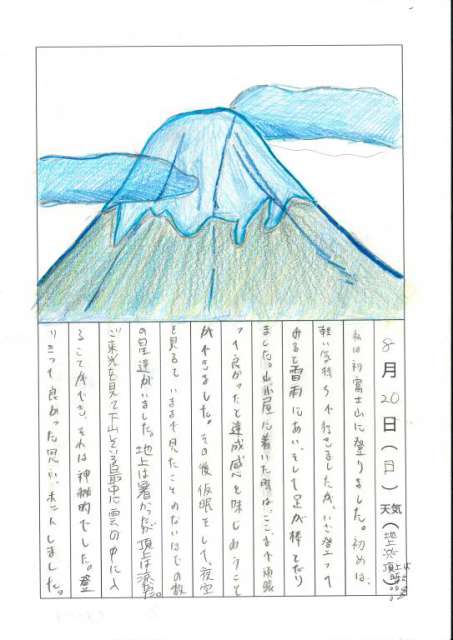 8月20日(日)天気(地上
頂上は
私は初富士山に登りました。初めは、
軽い気持ちで行きましたが、いざ登って
みると雷雨にあい、そして足が棒となり
ました。山小屋に着いた時は、ここまで頑張
って良かったと達成感を味じあうこと
ができました。その後仮眠をして、夜空
を見ると、いままで見たことのないほどの数
の星達がいました。地上は暑かったが頂上は
ご来光を見て下山している最中に雲の中に入
ることができ、それは神秘的でした。登
りきって良かった思い、ホントしました。